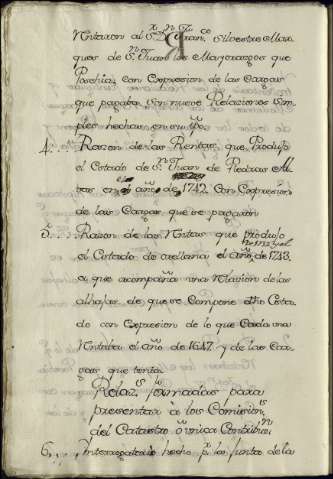 Rentaron al S.r D.n Fran.co Silvestre Mar
ques de S.n Juan los Mayorazgos que
Poschia, con Expresion de las Cargas
que pagaba en nueve Relaciones Sim
ples hechas en
4.... Razon de las Rentas, que Produjo
el Estado de S.n Juan de Piedras Al
vas en el año de 1742. con Expresion
de las Cargas que se pagaron
5.... Razon de las Rentas que produjo
el Estado de Orellana el año de 1743.
a que acompaña una Relacion de las
alhajas de que se Compone dho Esta
do con Expresion de lo que Cada una
Rentaba el año de 1647. y de las Car
gas que tenia.
Relaz.s formadas para
presentar a los Comision.s
del Catastro o unica Contribu.n
6.... Interrogatorio hecho p.r la Junta de la